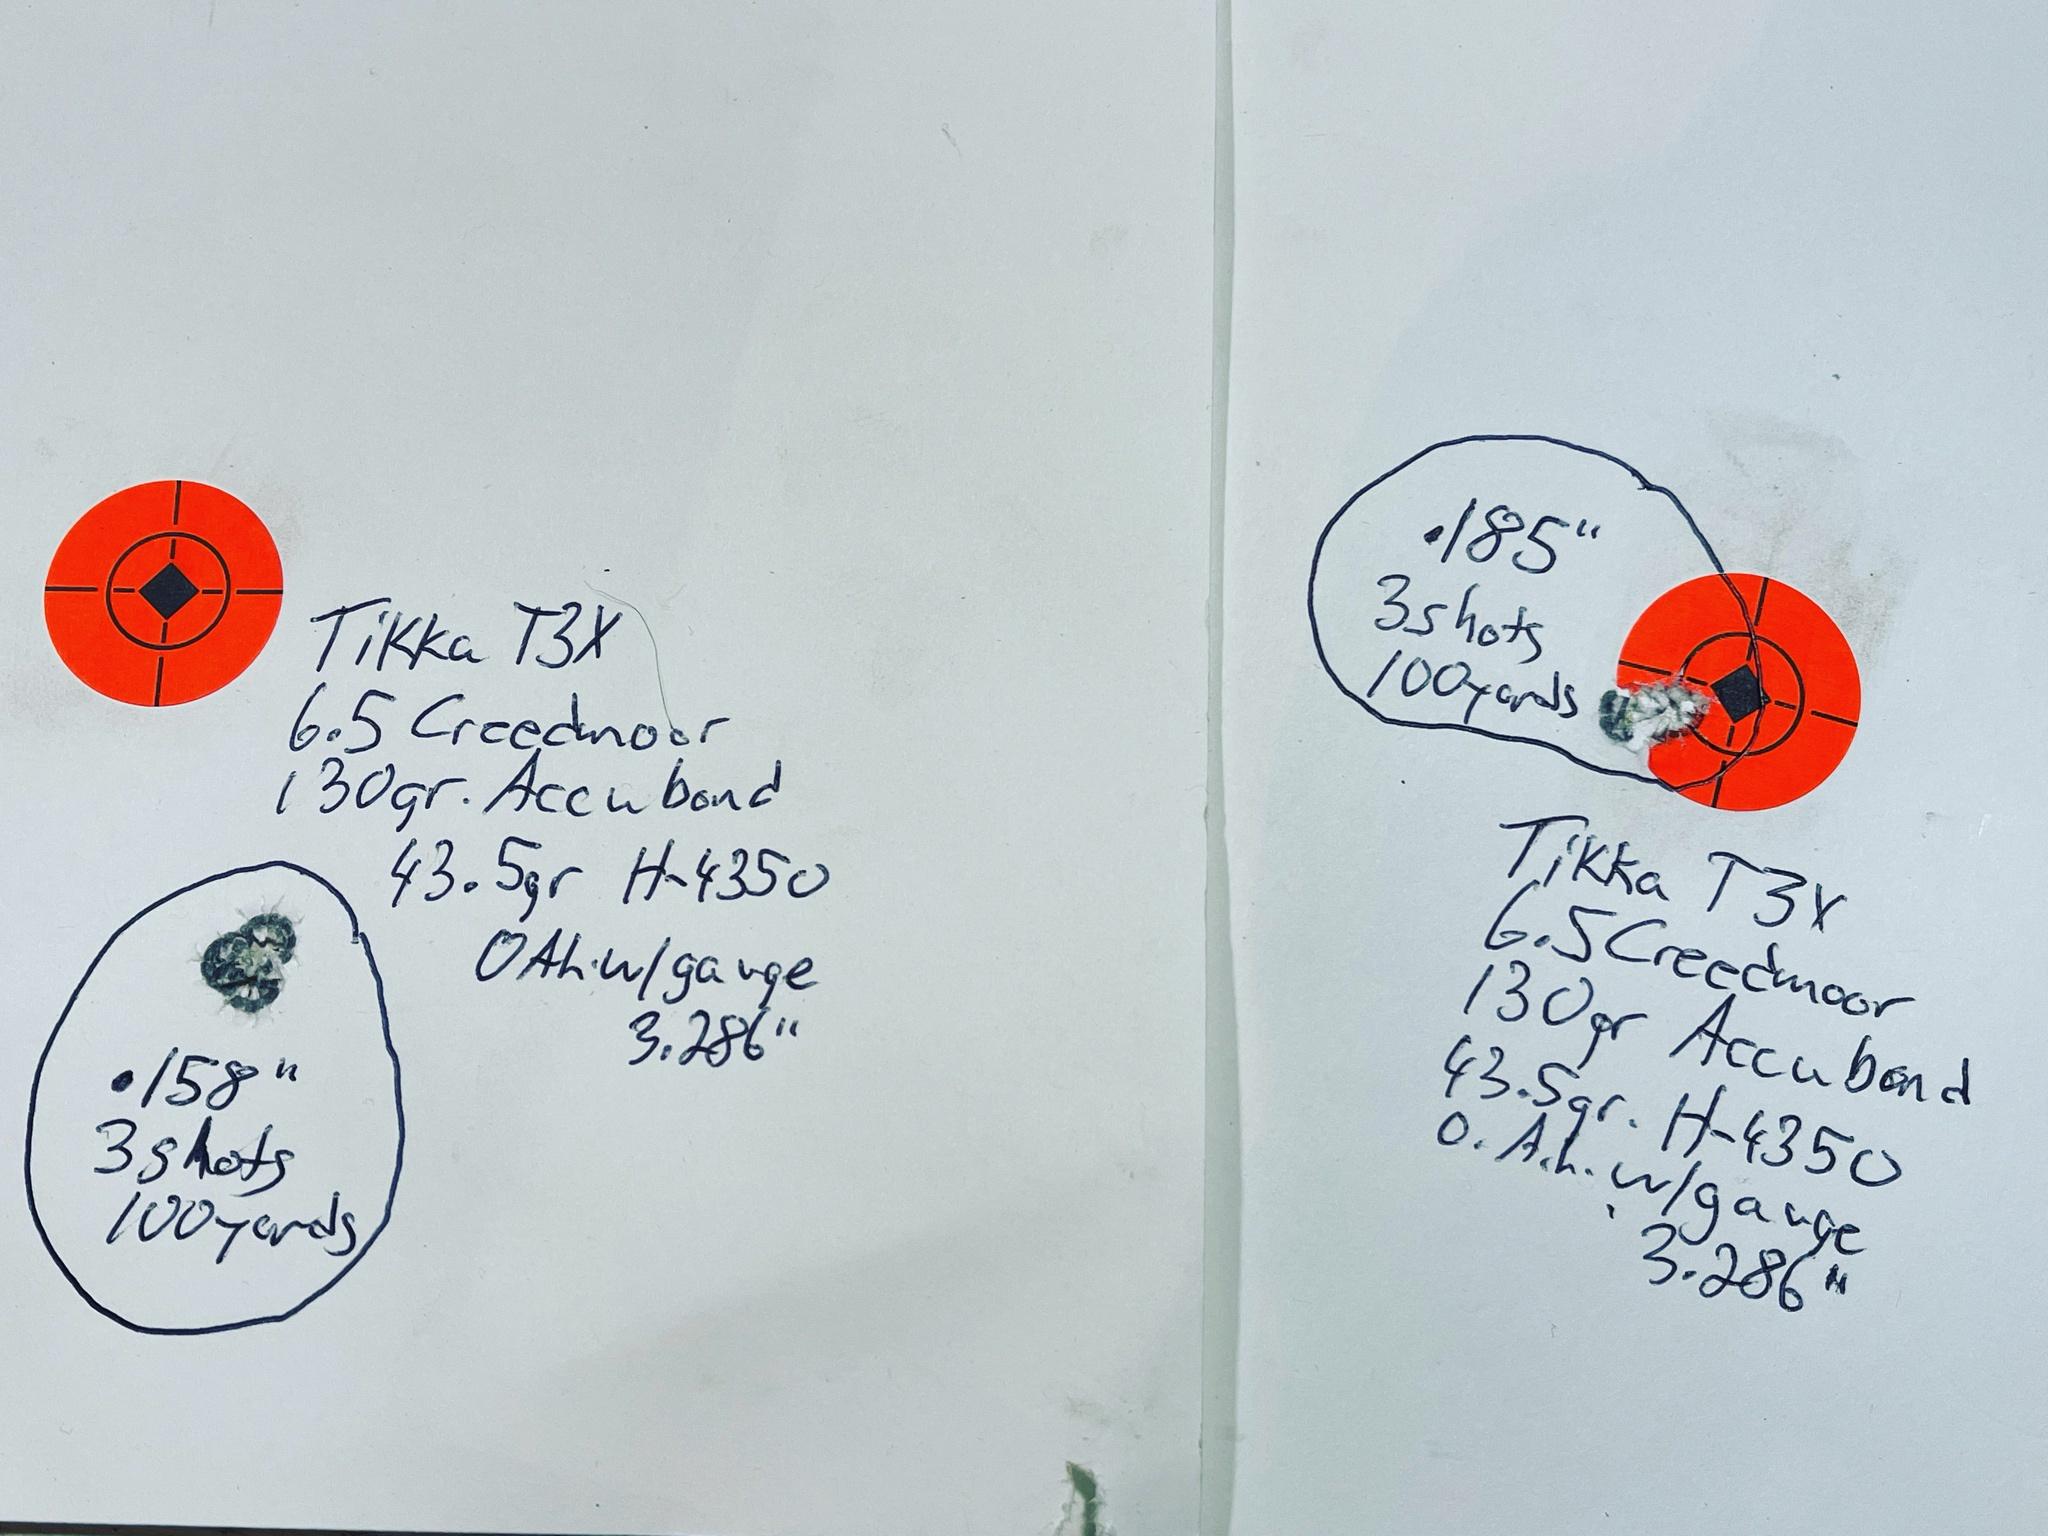 Tikka T3X
6.5 Creedmoor
130gr. Accubond
43.5gr H-4350
OAh. w/gauge
3.286"
.158"
3 shots
100 yards
.185"
3 shots
100 yards
Tikka T3X
6.5 Creedmoor
130gr Accubond
43.5gr. H-4350
O.A.h. w/gauge
3.286"